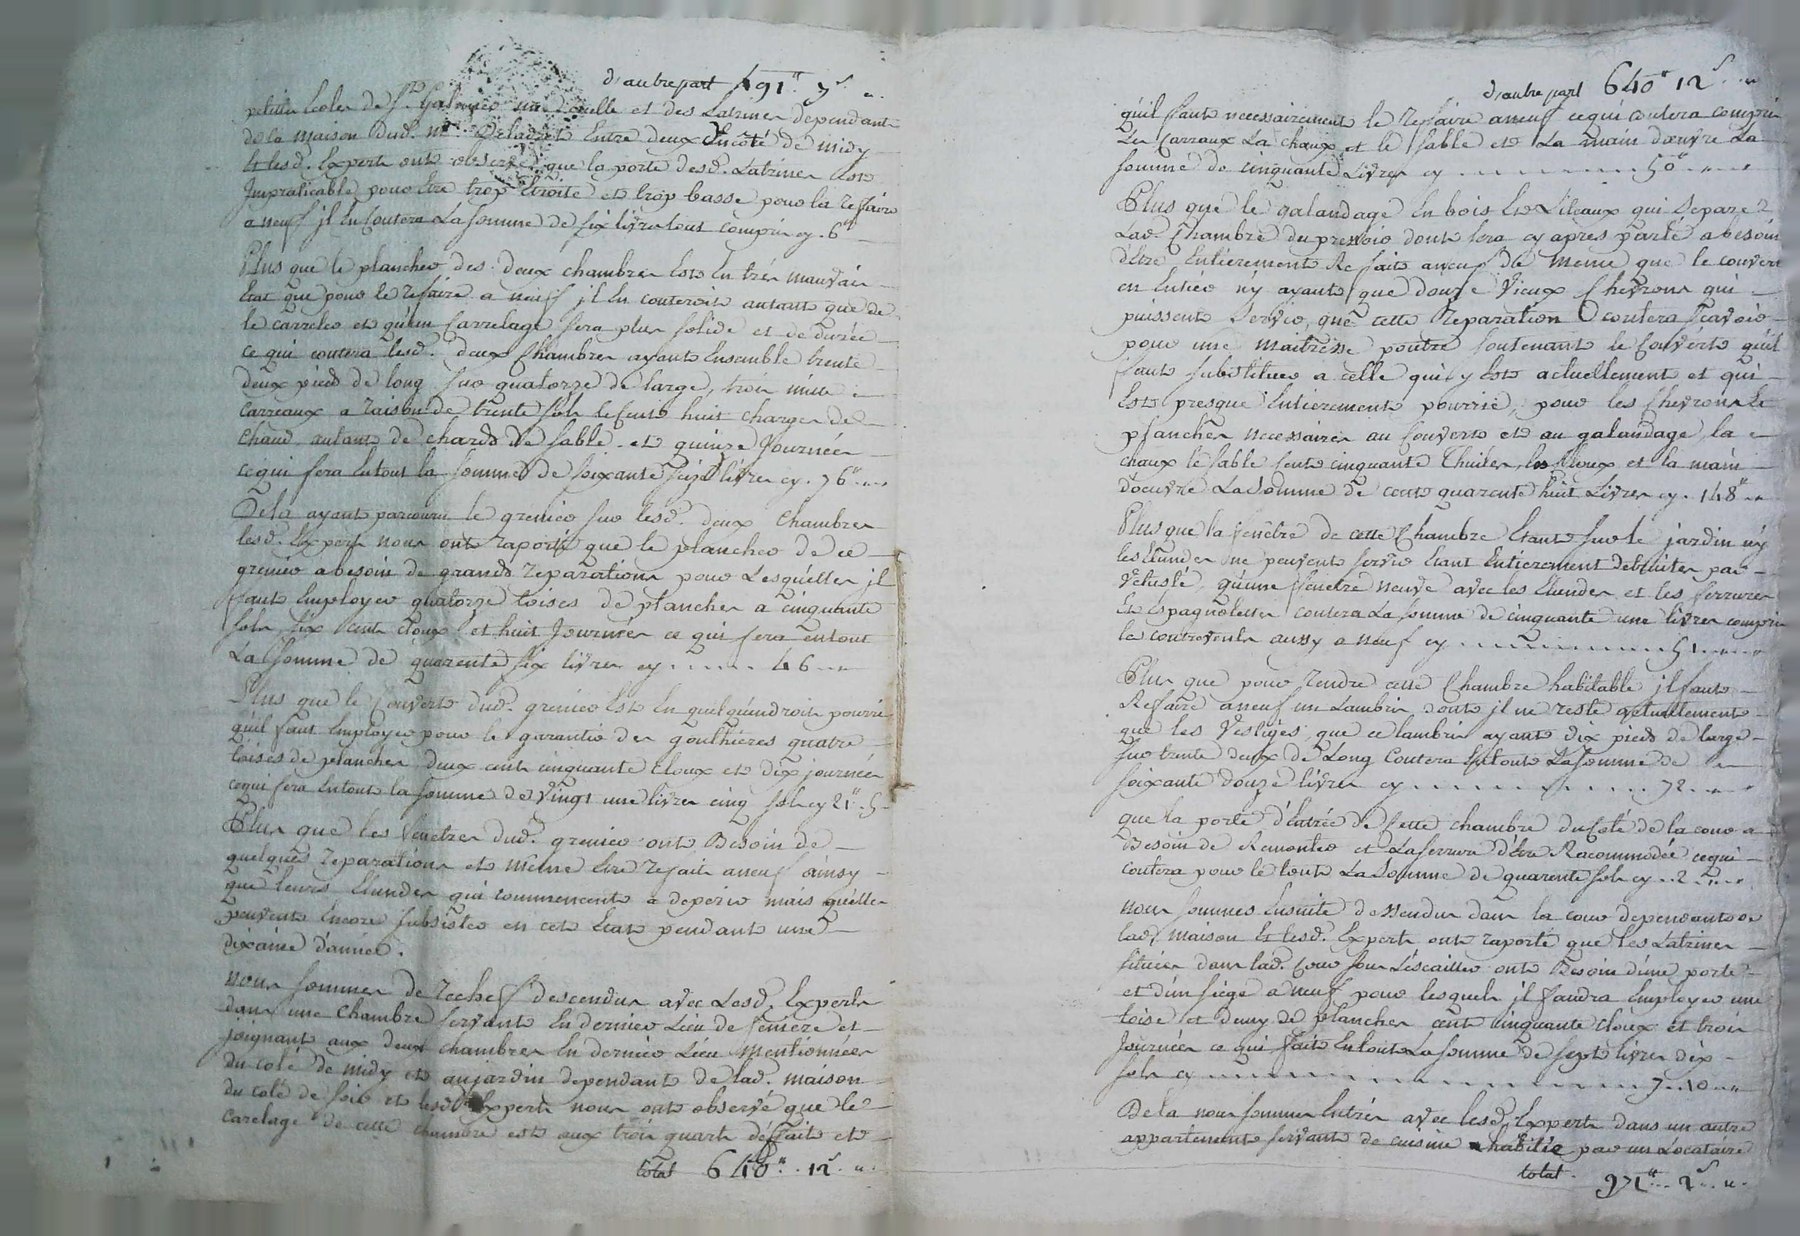 d'autre part 491ʰ 7ˢ "
petites Ecoles de Sᵗ et des Latrines dependant
de la maison dud. mʳ Deladret Entre deux du Coté de midy
Et lesd. Experts ont observé que la porte desd. Latrines Est
Impraticable pour Etre trop Etroite et trop basse pour la reffaire
a neuf jl En Coutera La somme de six livres tout compris cy . 6ʰ
Plus que le plancher des deux chambres Est En très mauvais
Etat que pour le refaire a neuf jl En couteroit autant que de
le carreler et qu'un Carrelage sera plus solide et de durée
ce qui coutera lesd. deux Chambres ayant Ensemble trente
deux pieds de long sur quatorze de large, trois mille
Carreaux a raison de trente sols le cent huit charges de
Chaud autant de chards de sable et quinze Journées
ce qui fera En tout la somme de soixante seize livres cy . 76ʰ
De la ayant parcouru le grenier sur lesd. deux Chambres
lesd. Experts nous ont raporté que le plancher de ce
grenier a besoin de grands reparations pour Lesquelles jl
faut Employer quatorze toises de planches a cinquante
sols, six cent Cloux et huit Journées ce qui fera en tout
La somme de quarente six livres cy . . . . . 46
Plus que le Couvert dud. grenier Est En quelqu'endroits pourris
qu'il faut Employer pour le garantir des gouthières quatre
toises de planches, deux cent cinquante Cloux et dix journées
ce qui fera En tout la somme de Vingt une livres cinq sols cy 21ʰ 5
Plus que les fenetres dud. grenier ont Besoin de
quelque reparations et même Etre refaits a neuf ainsy
que leurs Eundes qui commencent a deperir mais quelles
peuvent Encore subsister en cet Etat pendant une
dixaine d'année.
Nous sommes de rechef descendus avec Lesd. Experts
dans une Chambre servante En dernier Lieu de feniere et
joignant aux deux chambres En dernier Lieu Mentionnées
du coté de midy et au jardin dependant de lad. maison
du coté de soir et lesd. Experts nous ont observé que le
Carelage de cette chambre est aux trois quart deffait et
total 640ʰ . 12ˢ "
d'autre part 640ʰ 12ˢ "
qu'il faut necessairement le reffaire a neuf ce qui coutera compris
Les Carraux La chaux et le sable et La main d'œuvre La
somme de cinquante Livres cy . . . . . . . . 50ʰ
Plus que le galandage En bois Et Liteaux qui separe
Lad. Chambre du pressoir dont sera cy apres parlé a besoin
d'être Entierement Reffait a neuf de meme que le couvert
en Entier n'y ayant que douze Vieux Chevrons qui
puissent Servir, que cette Reparation coutera scavoir
pour une maitresse poutre soutenant le Couvert qu'il
faut substituer a celle qui y Est actuellement et qui
Est presque Entierement pourrie, pour les Chevrons Et
planches necessaires au Couvert et au galandage, la
chaux le sable cent cinquante Thuiles, les Cloux et la main
d'oeuvre La Somme de cent quarente huit Livres cy . 148ʰ
Plus que la fenêtre de cette Chambre Etant sur le jardin n'y
les Eundes ne peuvent servir Etant Entierement detruites par
Vetusté, qu'une fenetre neuve avec les Eundes et les ferrures
Et Espagnolettes coutera La somme de cinquante une livres compris
le contrevents aussy a neuf cy . . . . . . . . . . 51
Plus que pour rendre cette Chambre habitable jl faut
Reffaire a neuf un Lambris dont jl ne reste actuellement
que les Vestiges, que ce lambris ayant dix pieds de large
sur trente deux de Long Coutera En tout La somme de
soixante douze livres cy . . . . . . . . . . 72
que la porte d'Entrée de cette chambre du Coté de la cour a
Besoin de Remonter et La serrure d'Etre Racommodée ce qui
coutera pour le tout La Somme de quarente sols cy . 2
Nous sommes Ensuite dessendus dans la cour dependante de
lad. maison Et lesd. Experts ont raporté que les Latrines
situées dans lad. Cour sous L'escailler ont Besoin d'une porte
et d'un siege a neuf pour lesquels jl faudra Employer une
toise et demy de planches cent cinquante Cloux et trois
Journées ce qui fait En tout La somme de sept livres dix
sols cy . . . . . . . . . . . . . 7 . 10
De la nous sommes Entrés avec lesd. Experts dans un autre
appartement servant de cuisine habitée par un Locataire
total . 971ʰ . 2ˢ "